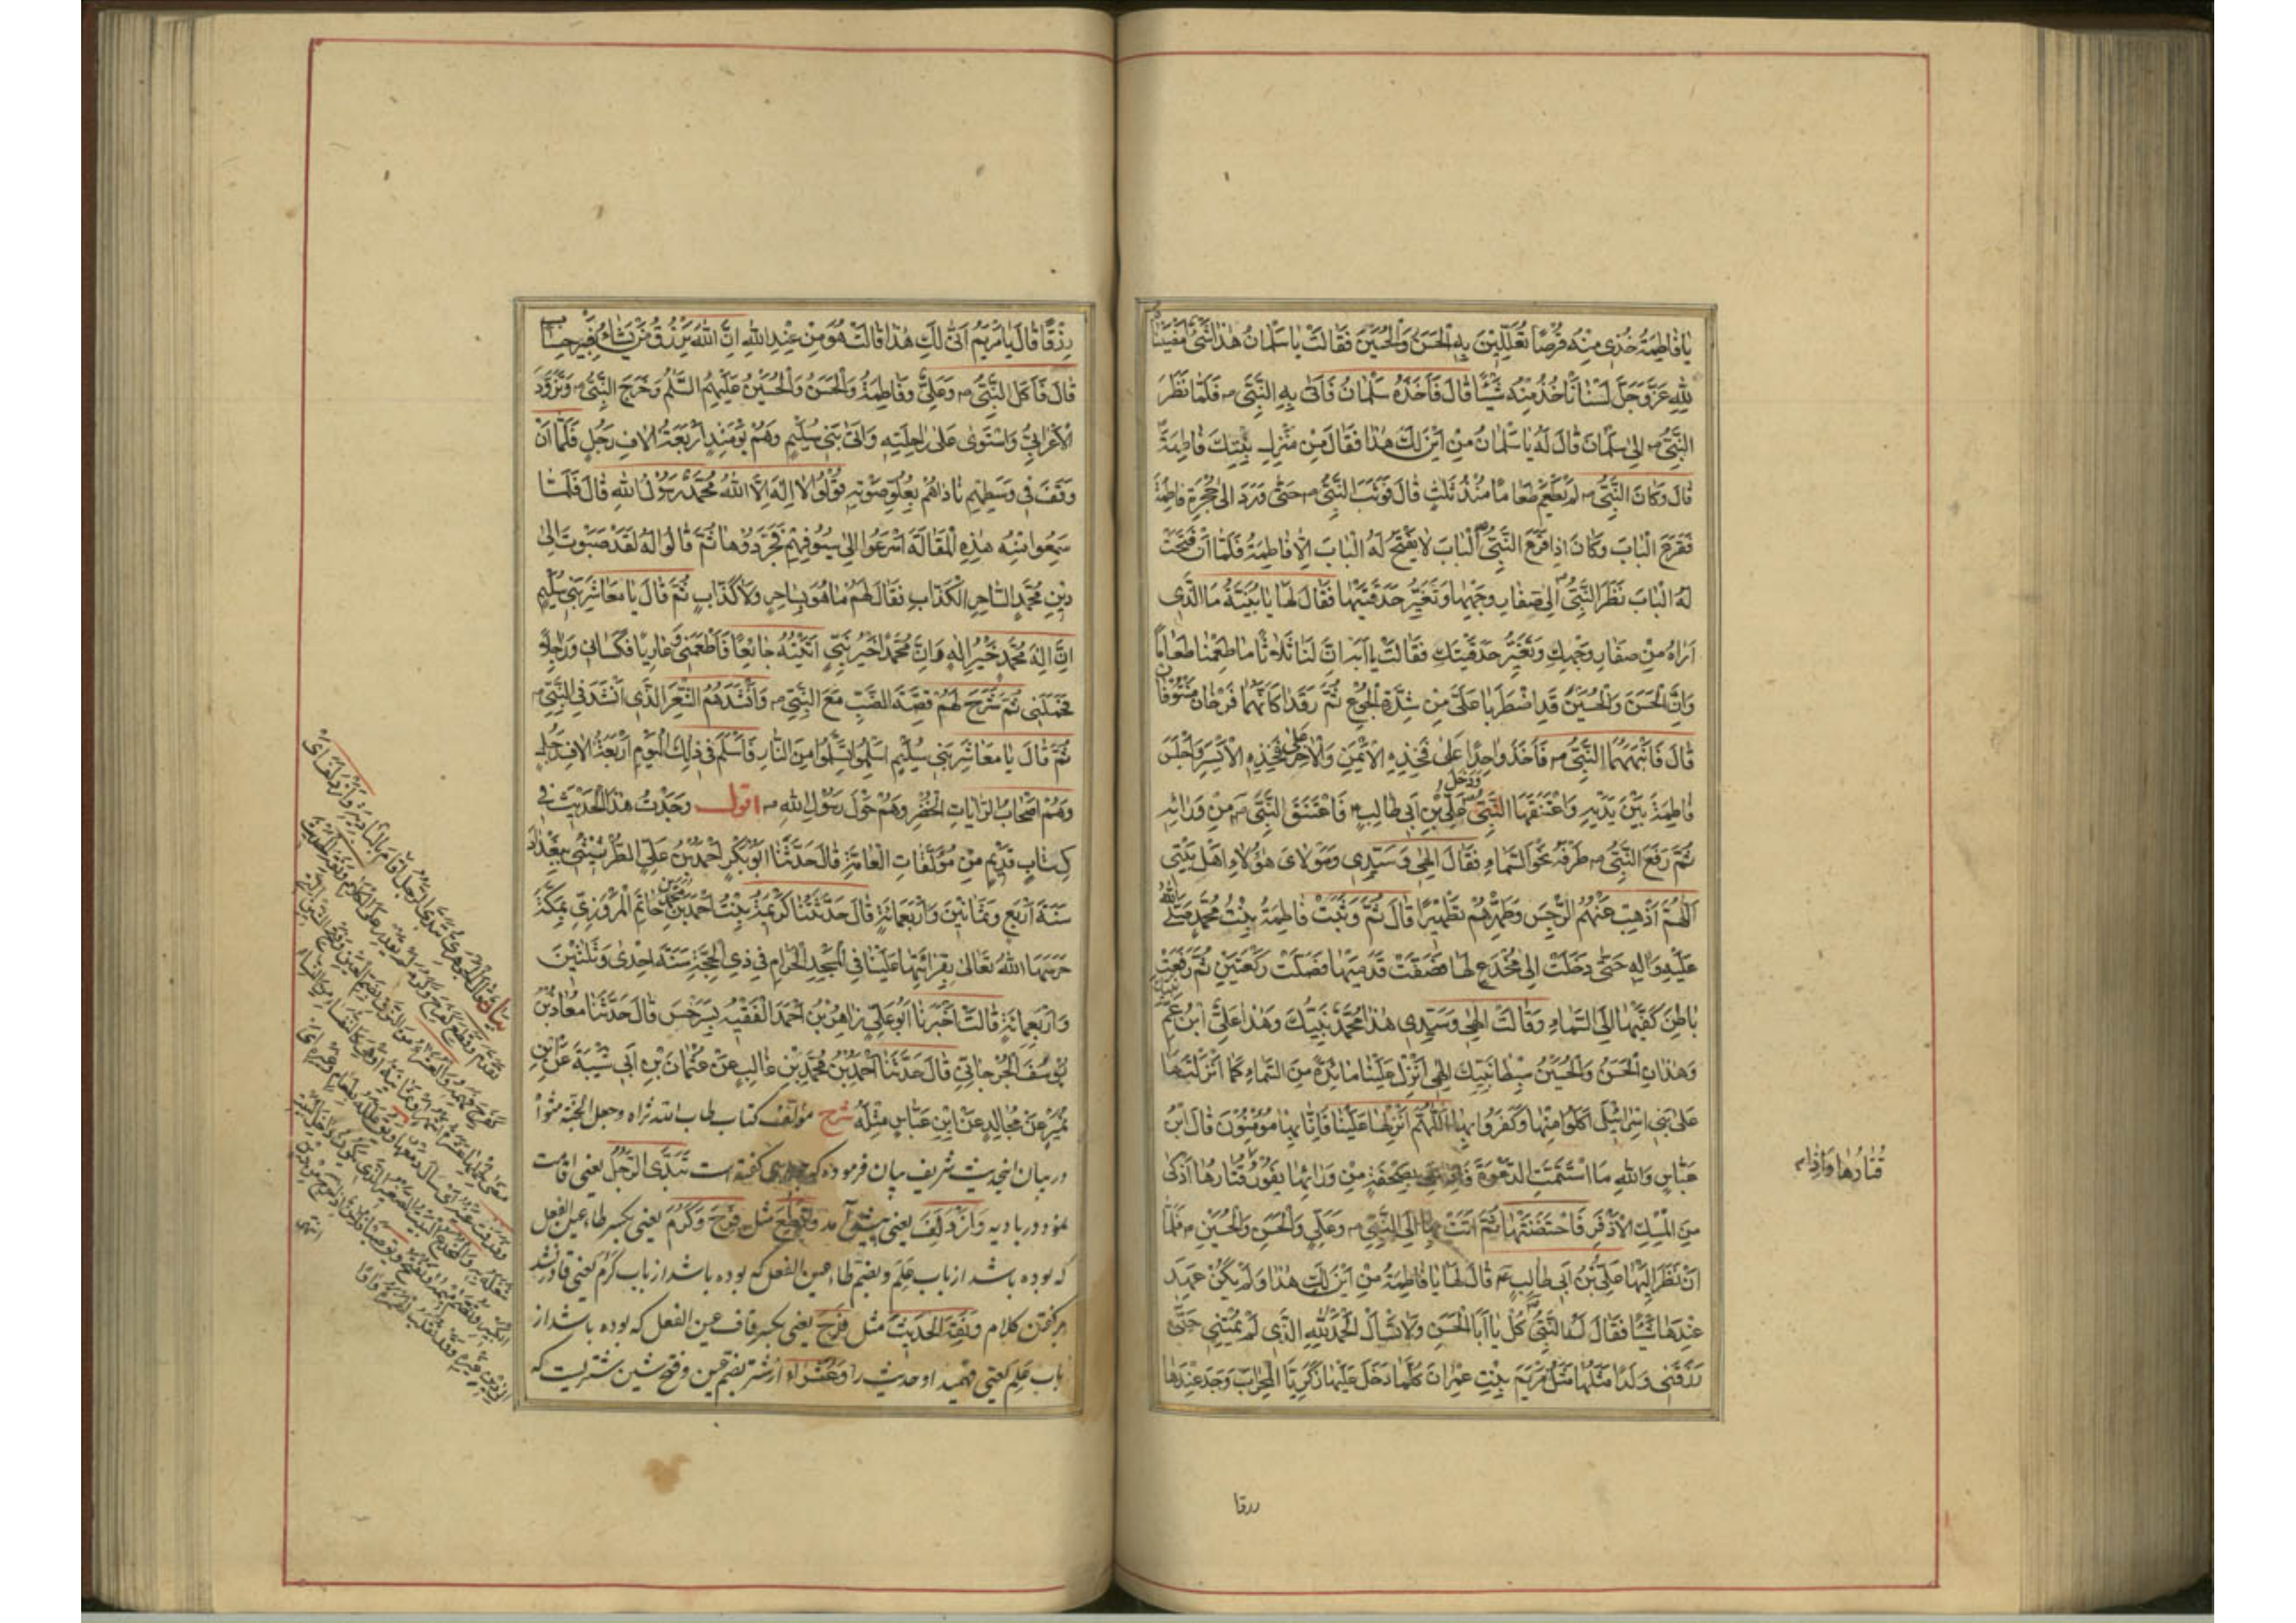 يا فاطمة خذي منه قرصا تعللين به الحسن والحسين فقالت يا سلمان هذا شيء امضيناه
لله عز وجل لسنا ناخذ منه شيئا قال فاخذه سلمان فاتى به النبي ص فلما نظر
النبي ص الى سلمان قال له يا سلمان من اين لك هذا فقال من منزل بنتك فاطمة
قال وكان النبي ص لم يطعم طعاما منذ ثلث قال فوثب النبي ص حتى ورد الى حجرة فاطمة
فقرع الباب وكان اذا قرع النبي ص الباب لا يفتح له الباب الا فاطمة فلما ان فتحت
له الباب نظر النبي ص الى صفار وجهها وتغير حدقتيها فقال لها يا بنية ما الذي
اراه من صفار وجهك وتغير حدقتيك فقالت يا ابه ان لنا ثلاثا ما طعمنا طعاما
وان الحسن والحسين قد اضطربا علي من شدة الجوع ثم رقدا كانهما فرخان منتوفان
قال فانبههما النبي ص فاخذ واحدا على فخذه الايمن والاخر على فخذه الايسر واجلس
فاطمة بين يديه واعتنقها النبي ص ودخل علي بن ابي طالب ع فاعتنق النبي ص من ورائه
ثم رفع النبي ص طرفه نحو السماء فقال الهي وسيدي ومولاي هؤلاء اهل بيتي
اللهم اذهب عنهم الرجس وطهرهم تطهيرا قال ثم وثبت فاطمة بنت محمد صلى الله
عليه واله حتى دخلت الى مخدع لها فصفت قدميها فصلت ركعتين ثم رفعت
باطن كفيها الى السماء وقالت الهي وسيدي هذا محمد نبيك وهذا علي ابن عم نبيك
وهذان الحسن والحسين سبطا نبيك الهي انزل علينا مائدة من السماء كما انزلتها
على بني اسرائيل اكلوا منها وكفروا بها اللهم انزلها علينا فانا بها مؤمنون قال ابن
عباس والله ما استتمت الدعوة فاذا هي بصحفة من ورائها يفور قتارها اذكى
من المسك الاذفر فاحتضنتها ثم اتت بها الى النبي ص وعلي والحسن والحسين ع فلما
ان نظر اليها علي بن ابي طالب ع قال لها يا فاطمة من اين لك هذا ولم يكن عهد
عندها شيئا فقال له النبي ص كل يا ابا الحسن ولا تسال الحمد لله الذي لم يمتني حتى
رزقني ولدا مثلها مثل مريم بنت عمران كلما دخل عليها زكريا المحراب وجد عندها
قتارها واذا
رزقا
رزقا قال يا مريم انى لك هذا قالت هو من عند الله ان الله يرزق من يشاء بغير حساب
قال فاكل النبي ص وعلي وفاطمة والحسن والحسين عليهم السلم وخرج النبي ص وتزود
الاعرابي واستوى على راحلته واتى بني سليم وهم يومئذ اربعة الاف رجل فلما ان
وقف في وسطهم ناداهم بعلو صوته قولوا لا اله الا الله محمد رسول الله قال فلما
سمعوا منه هذه المقالة اسرعوا الى سيوفهم فجردوها ثم قالوا له لقد صبوت الى
دين محمد الساحر الكذاب فقال لهم ما هو بساحر ولا كذاب ثم قال يا معاشر بني سليم
ان اله محمد خير اله وان محمدا خير نبي اتيته جائعا فاطعمني وعاريا فكساني وراجلا
فحملني ثم شرح لهم قصة الضب مع النبي ص وانشدهم الشعر الذي انشد في النبي ص
ثم قال يا معاشر بني سليم اسلموا تسلموا من النار فاسلم في ذلك اليوم اربعة الاف رجل
وهم اصحاب الرايات الخضر وهم حول رسول الله ص اقول وجدت هذا الحديث في
كتاب قديم من مؤلفات العامة قال حدثنا ابو بكر احمد بن علي الطرثيثي ببغداد
سنة اربع وثمانين واربعمائة قال حدثتنا كريمة بنت احمد بن محمد بن حاتم المروزي بمكة
حرسها الله تعالى بقرائتها علينا في المسجد الحرام في ذي الحجة سنة احدى وثلثين
واربعمائة قالت اخبرنا ابو علي زاهر بن احمد الفقيه بسرخس قال حدثنا معاذ بن
يوسف الجرجاني قال حدثنا احمد بن محمد بن غالب عن عثمان بن ابي شيبة عن ابن
نمير عن مجالد عن ابن عباس مثله شرح مؤلف كتاب طاب الله ثراه وجعل الجنة مثواه
در بيان اينحديث شريف بيان فرموده كه جوهري كفته است تبدى الرجل يعني اقامت
نمود در باديه وازدلف يعني پيش آمد وقطع مثل فرح وكرم يعني بكسر طاء عين الفعل
كه بوده باشد از باب علم وبضم طاء عين الفعل كه بوده باشد از باب كرم يعني قادر نشد
بر كفتن كلام ونقه الحديث مثل فرح يعني بكسر قاف عين الفعل كه بوده باشد از
باب علم يعني فهميد او حديث را وعشراء ارشتر بضم عين وفتح شين شتريست كه